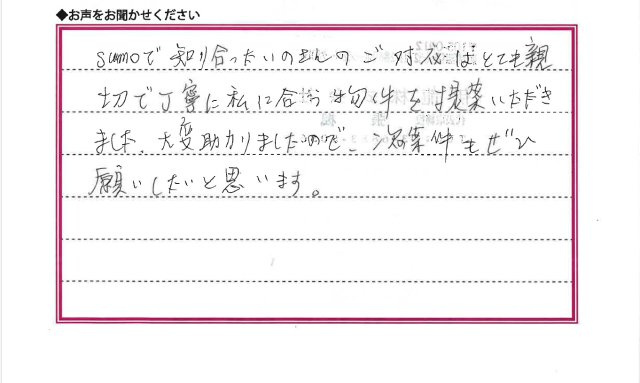 ◆お声をお聞かせください
sumoで知り合ったいのさんのご対応はとても親
切で丁寧に私に合う物件を提案いただき
ました。大変助かりましたので、次案件もぜひ
願いしたいと思います。